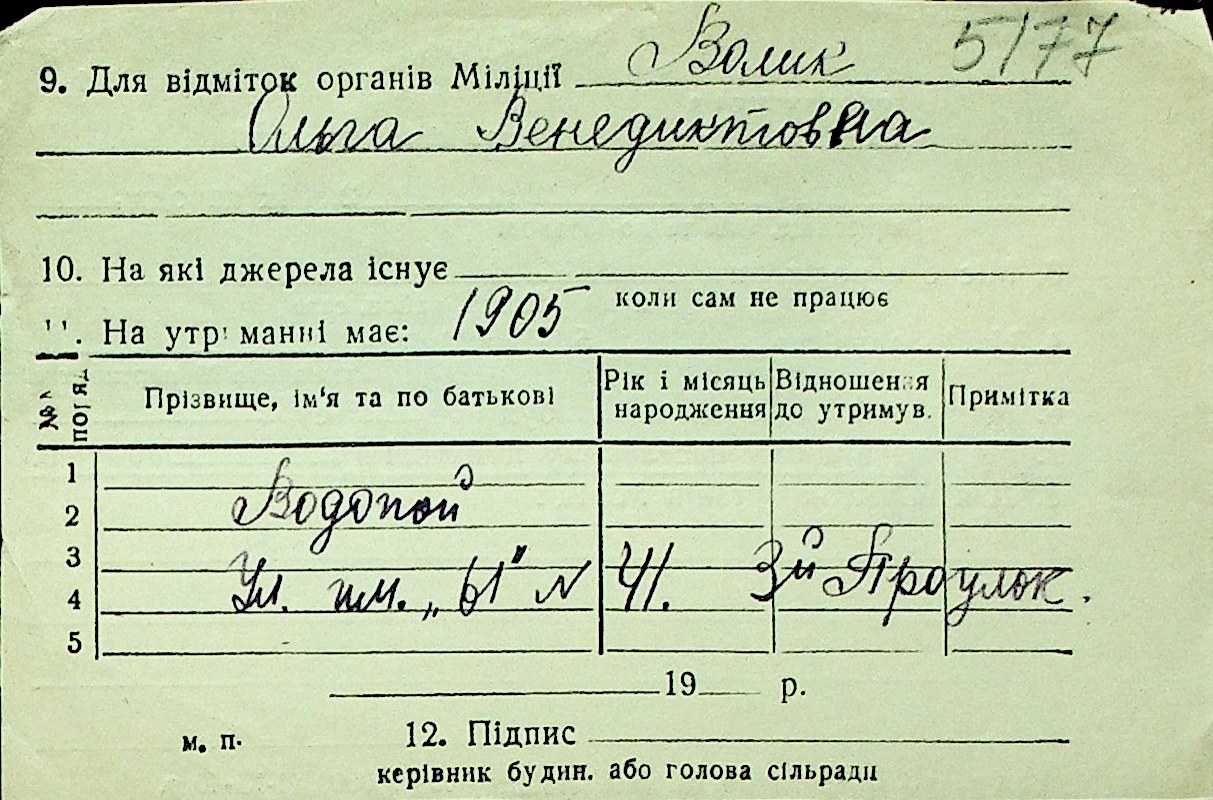 5/77
9. Для відміток органів Міліції Волик
Ольга Венедиктовна
10. На які джерела існує
коли сам не працює
11. На утриманні має: 1905
Прізвище, ім'я та по батькові Рік і місяць народження Відношення до утримув. Примітка
1
2 Водопой
3
4 Ул. им. „61" N 41. 3й Проулок.
5
19 р.
м. п. 12. Підпис
керівник будин. або голова сільради